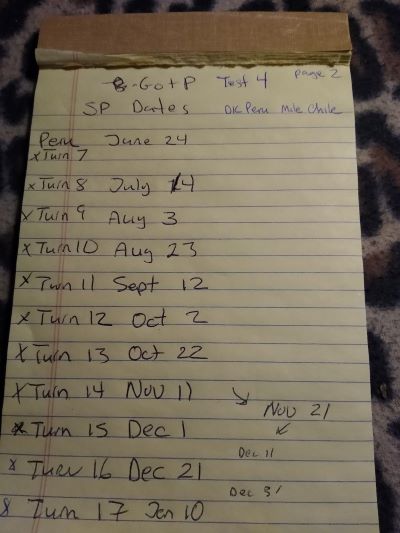 B-GotP Test 4 page 2
SP Dates DK Peru Mile Chile
Peru June 24
x Turn 7
x Turn 8 July 14
x Turn 9 Aug 3
x Turn 10 Aug 23
x Turn 11 Sept 12
x Turn 12 Oct 2
x Turn 13 Oct 22
x Turn 14 Nov 11
Nov 21
x Turn 15 Dec 1
Dec 11
x Turn 16 Dec 21
Dec 31
8 Turn 17 Jan 10